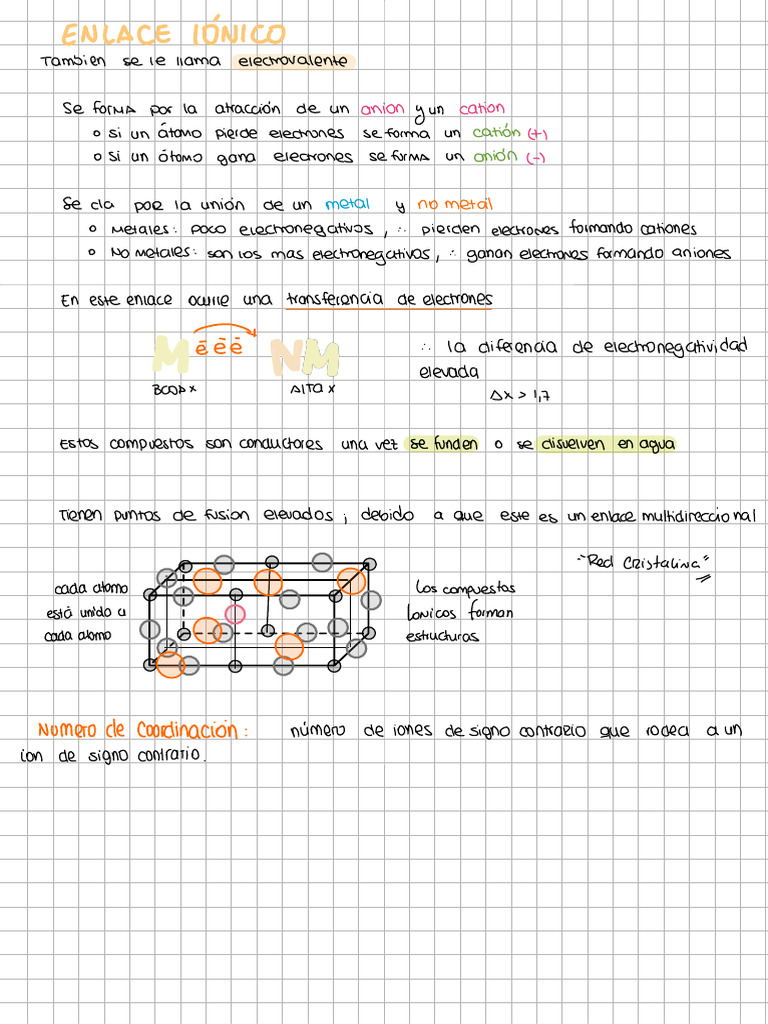 ENLACE IÓNICO
Tambien se le llama electrovalente
Se forma por la atracción de un anion y un cation
o Si un átomo pierde electrones se forma un catión (+)
o Si un átomo gana electrones se forma un anión (-)
Se da por la unión de un metal y no metal
o Metales: poco electronegativos, ∴ pierden electrones formando cationes
o No metales: son los mas electronegativos, ∴ ganan electrones formando aniones
En este enlace ocurre una transferencia de electrones
M ē ē ē NM
∴ la diferencia de electronegatividad
elevada
Baja x
Alta x
Δx > 1,7
Estos compuestos son conductores una vez se funden o se disuelven en agua
Tienen puntos de fusion elevados, debido a que este es un enlace multidireccional
"Red Cristalina"
cada atomo
está unido a
cada atomo
Los compuestos
Ionicos forman
estructuras
Numero de Coordinación: número de iones de signo contrario que rodea a un
ion de signo contrario.